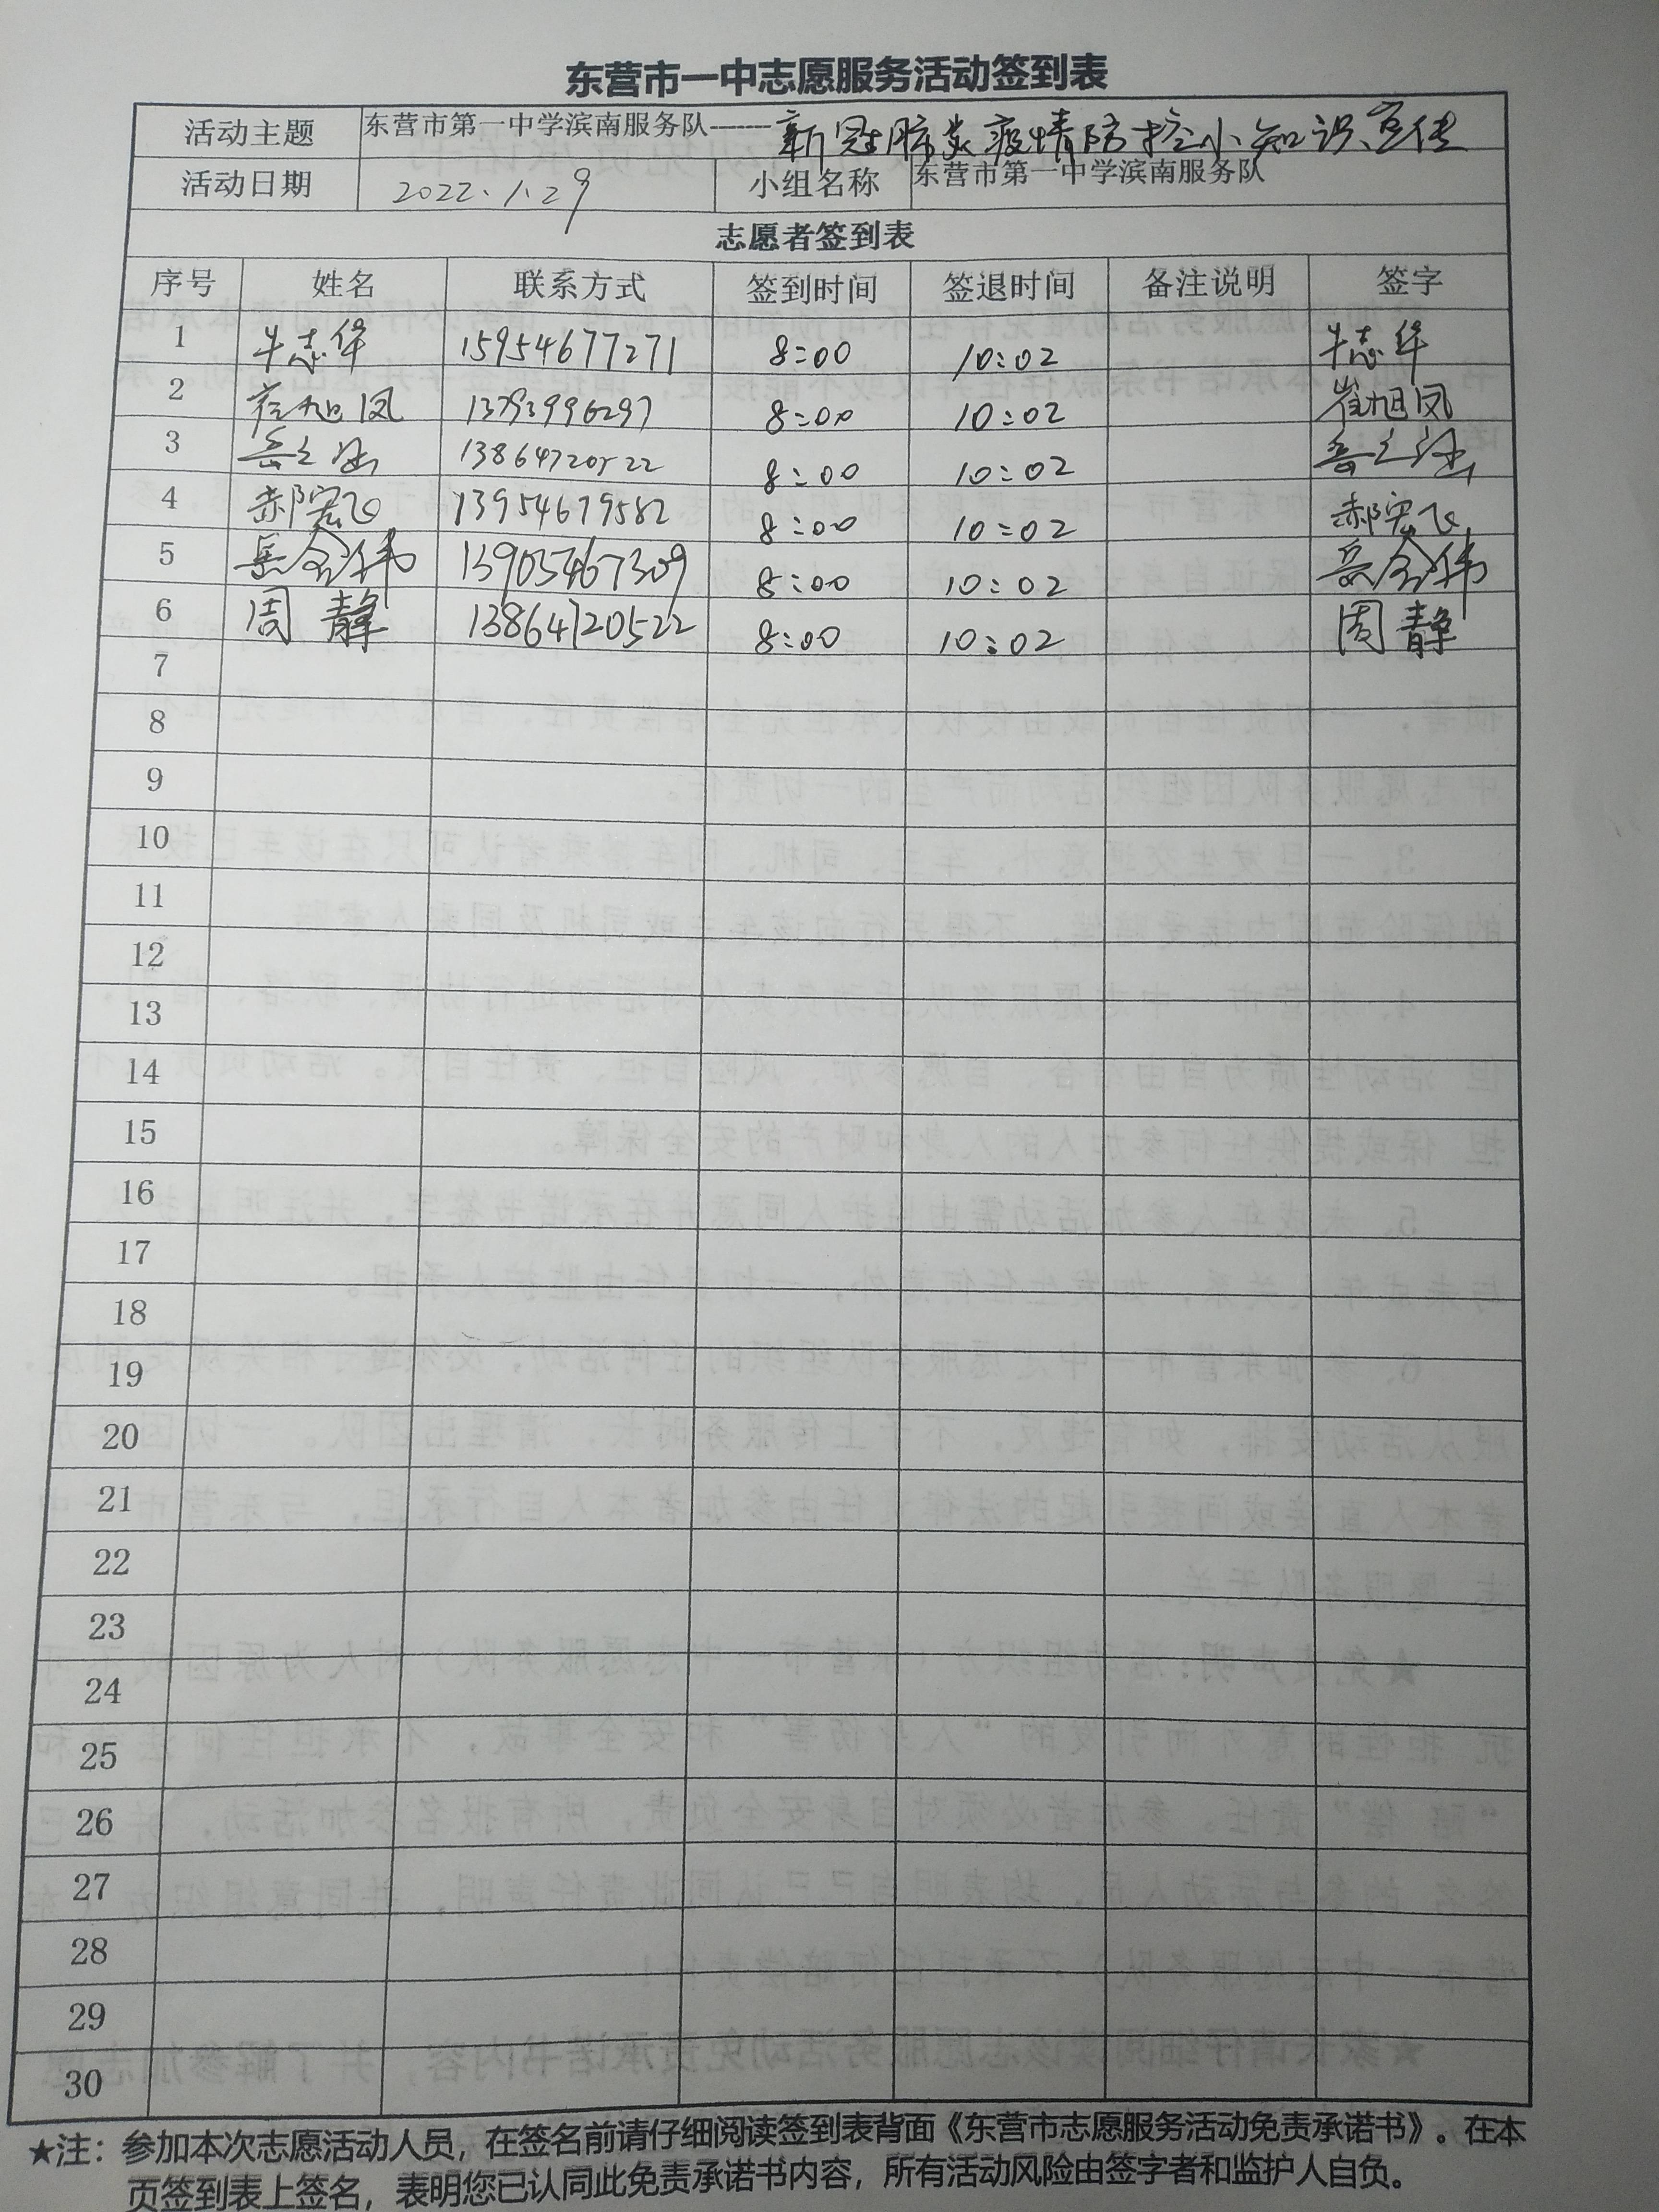 东营市一中志愿服务活动签到表
活动主题 东营市第一中学滨南服务队------新冠肺炎疫情防控小知识宣传
活动日期 2022.1.29 小组名称 东营市第一中学滨南服务队
志愿者签到表
序号 姓名 联系方式 签到时间 签退时间 备注说明 签字
1 牛志华 15954677271 8:00 10:02 牛志华
2 崔旭凤 13793996297 8:00 10:02 崔旭凤
3 岳之 13864720522 8:00 10:02 岳之
4 郝宏飞 13954679582 8:00 10:02 郝宏飞
5 岳金伟 13905467309 8:00 10:02 岳金伟
6 周静 13864720522 8:00 10:02 周静
7
8
9
10
11
12
13
14
15
16
17
18
19
20
21
22
23
24
25
26
27
28
29
30
★注：参加本次志愿活动人员，在签名前请仔细阅读签到表背面《东营市志愿服务活动免责承诺书》。在本
页签到表上签名，表明您已认同此免责承诺书内容，所有活动风险由签字者和监护人自负。